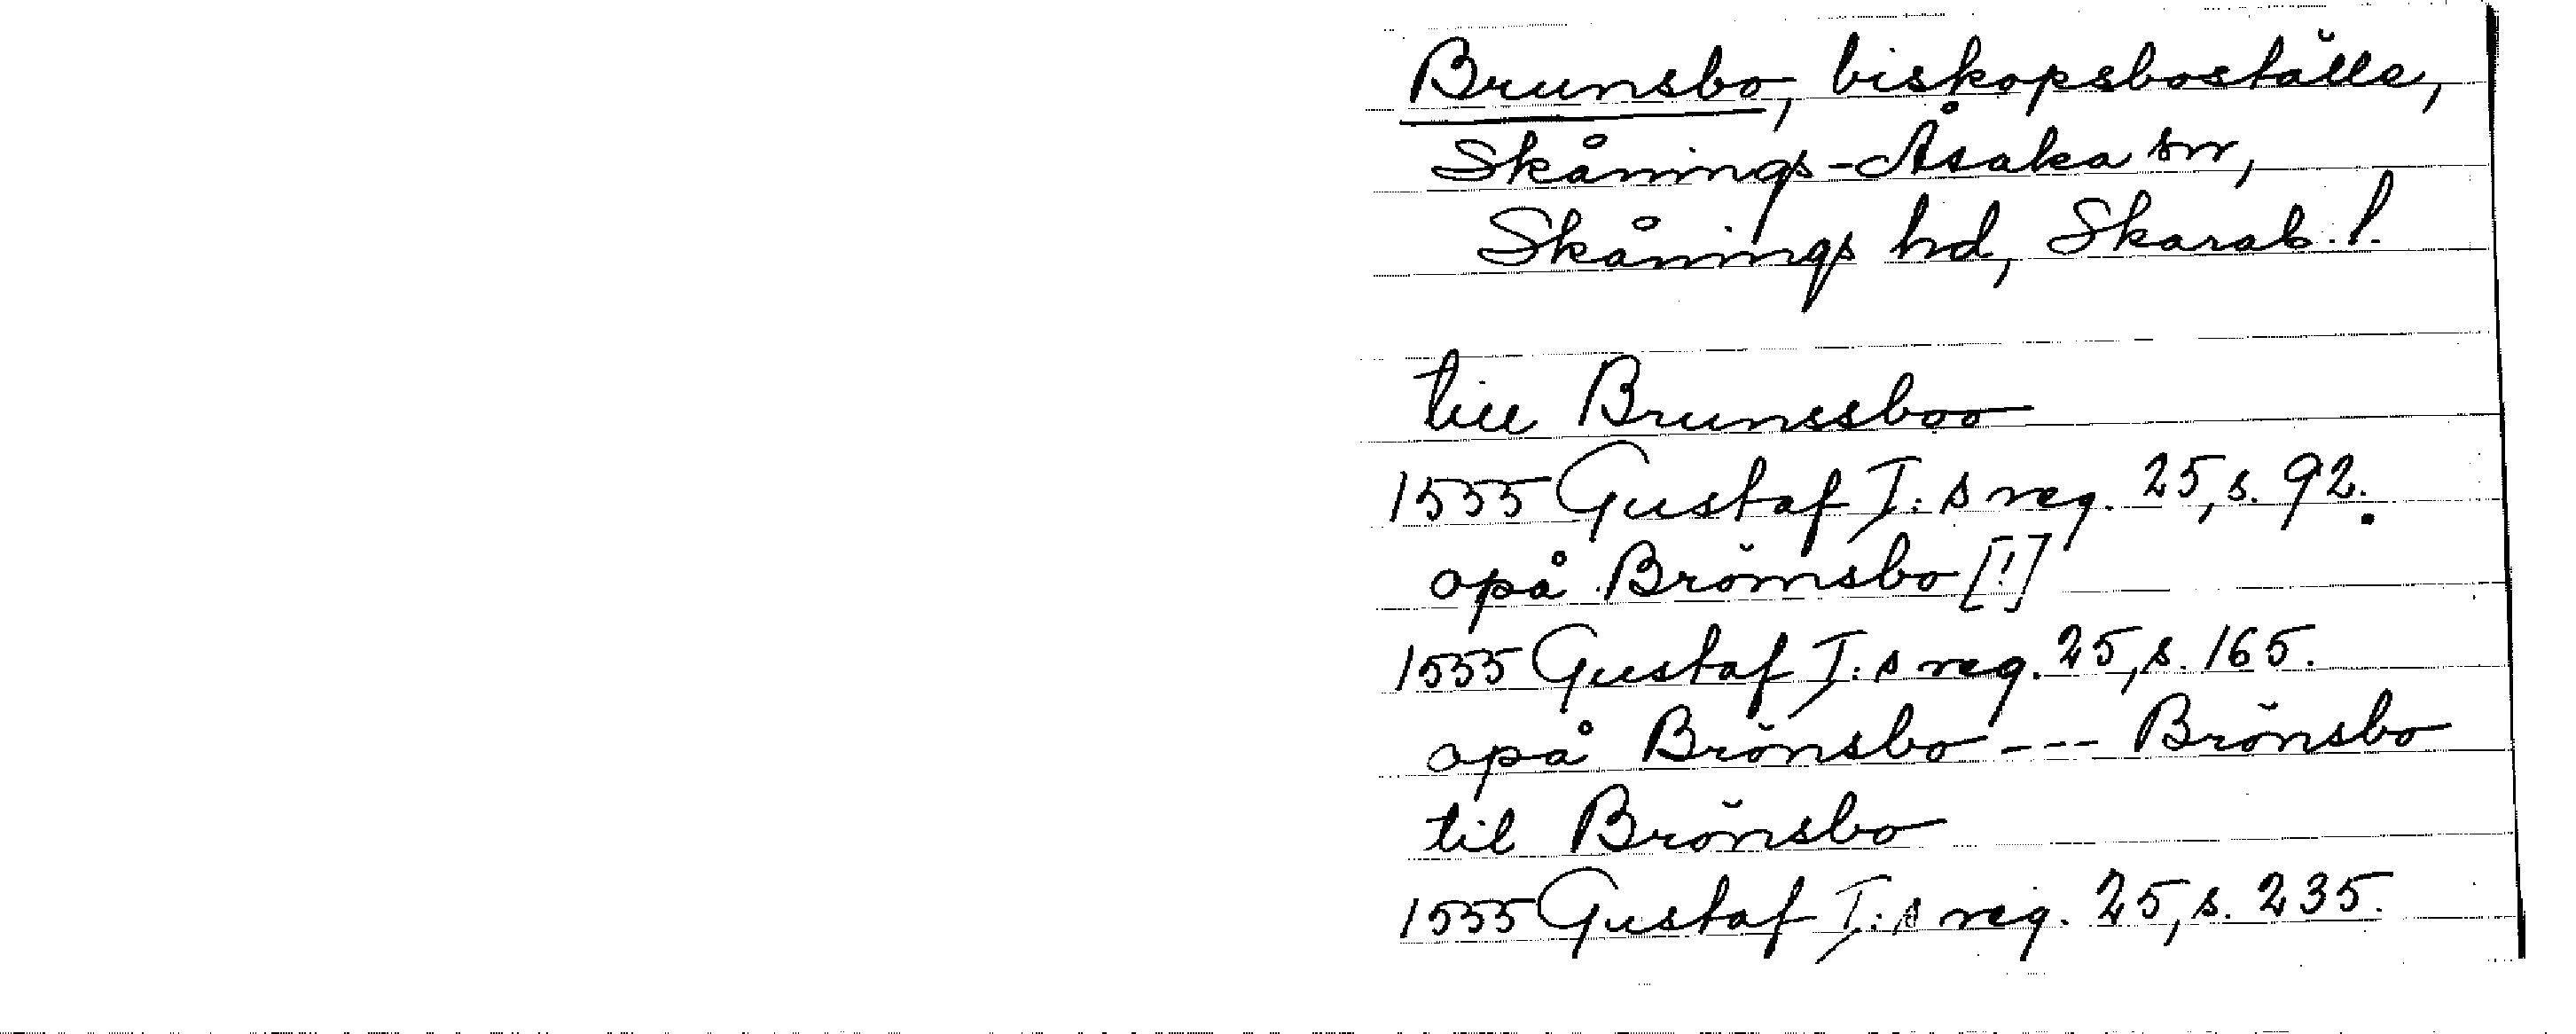 Brunsbo, biskopsboställe,
Skånings-Åsaka sn,
Skånings hd, Skarab. l.
till Brunssboo
1555 Gustaf I:s reg. 25, s. 92.
opå Brömsbo [!]
1555 Gustaf I:s reg. 25, s. 165.
opå Brönsbo --- Brönsbo
til Brönsbo
1555 Gustaf I:s reg. 25, s. 235.